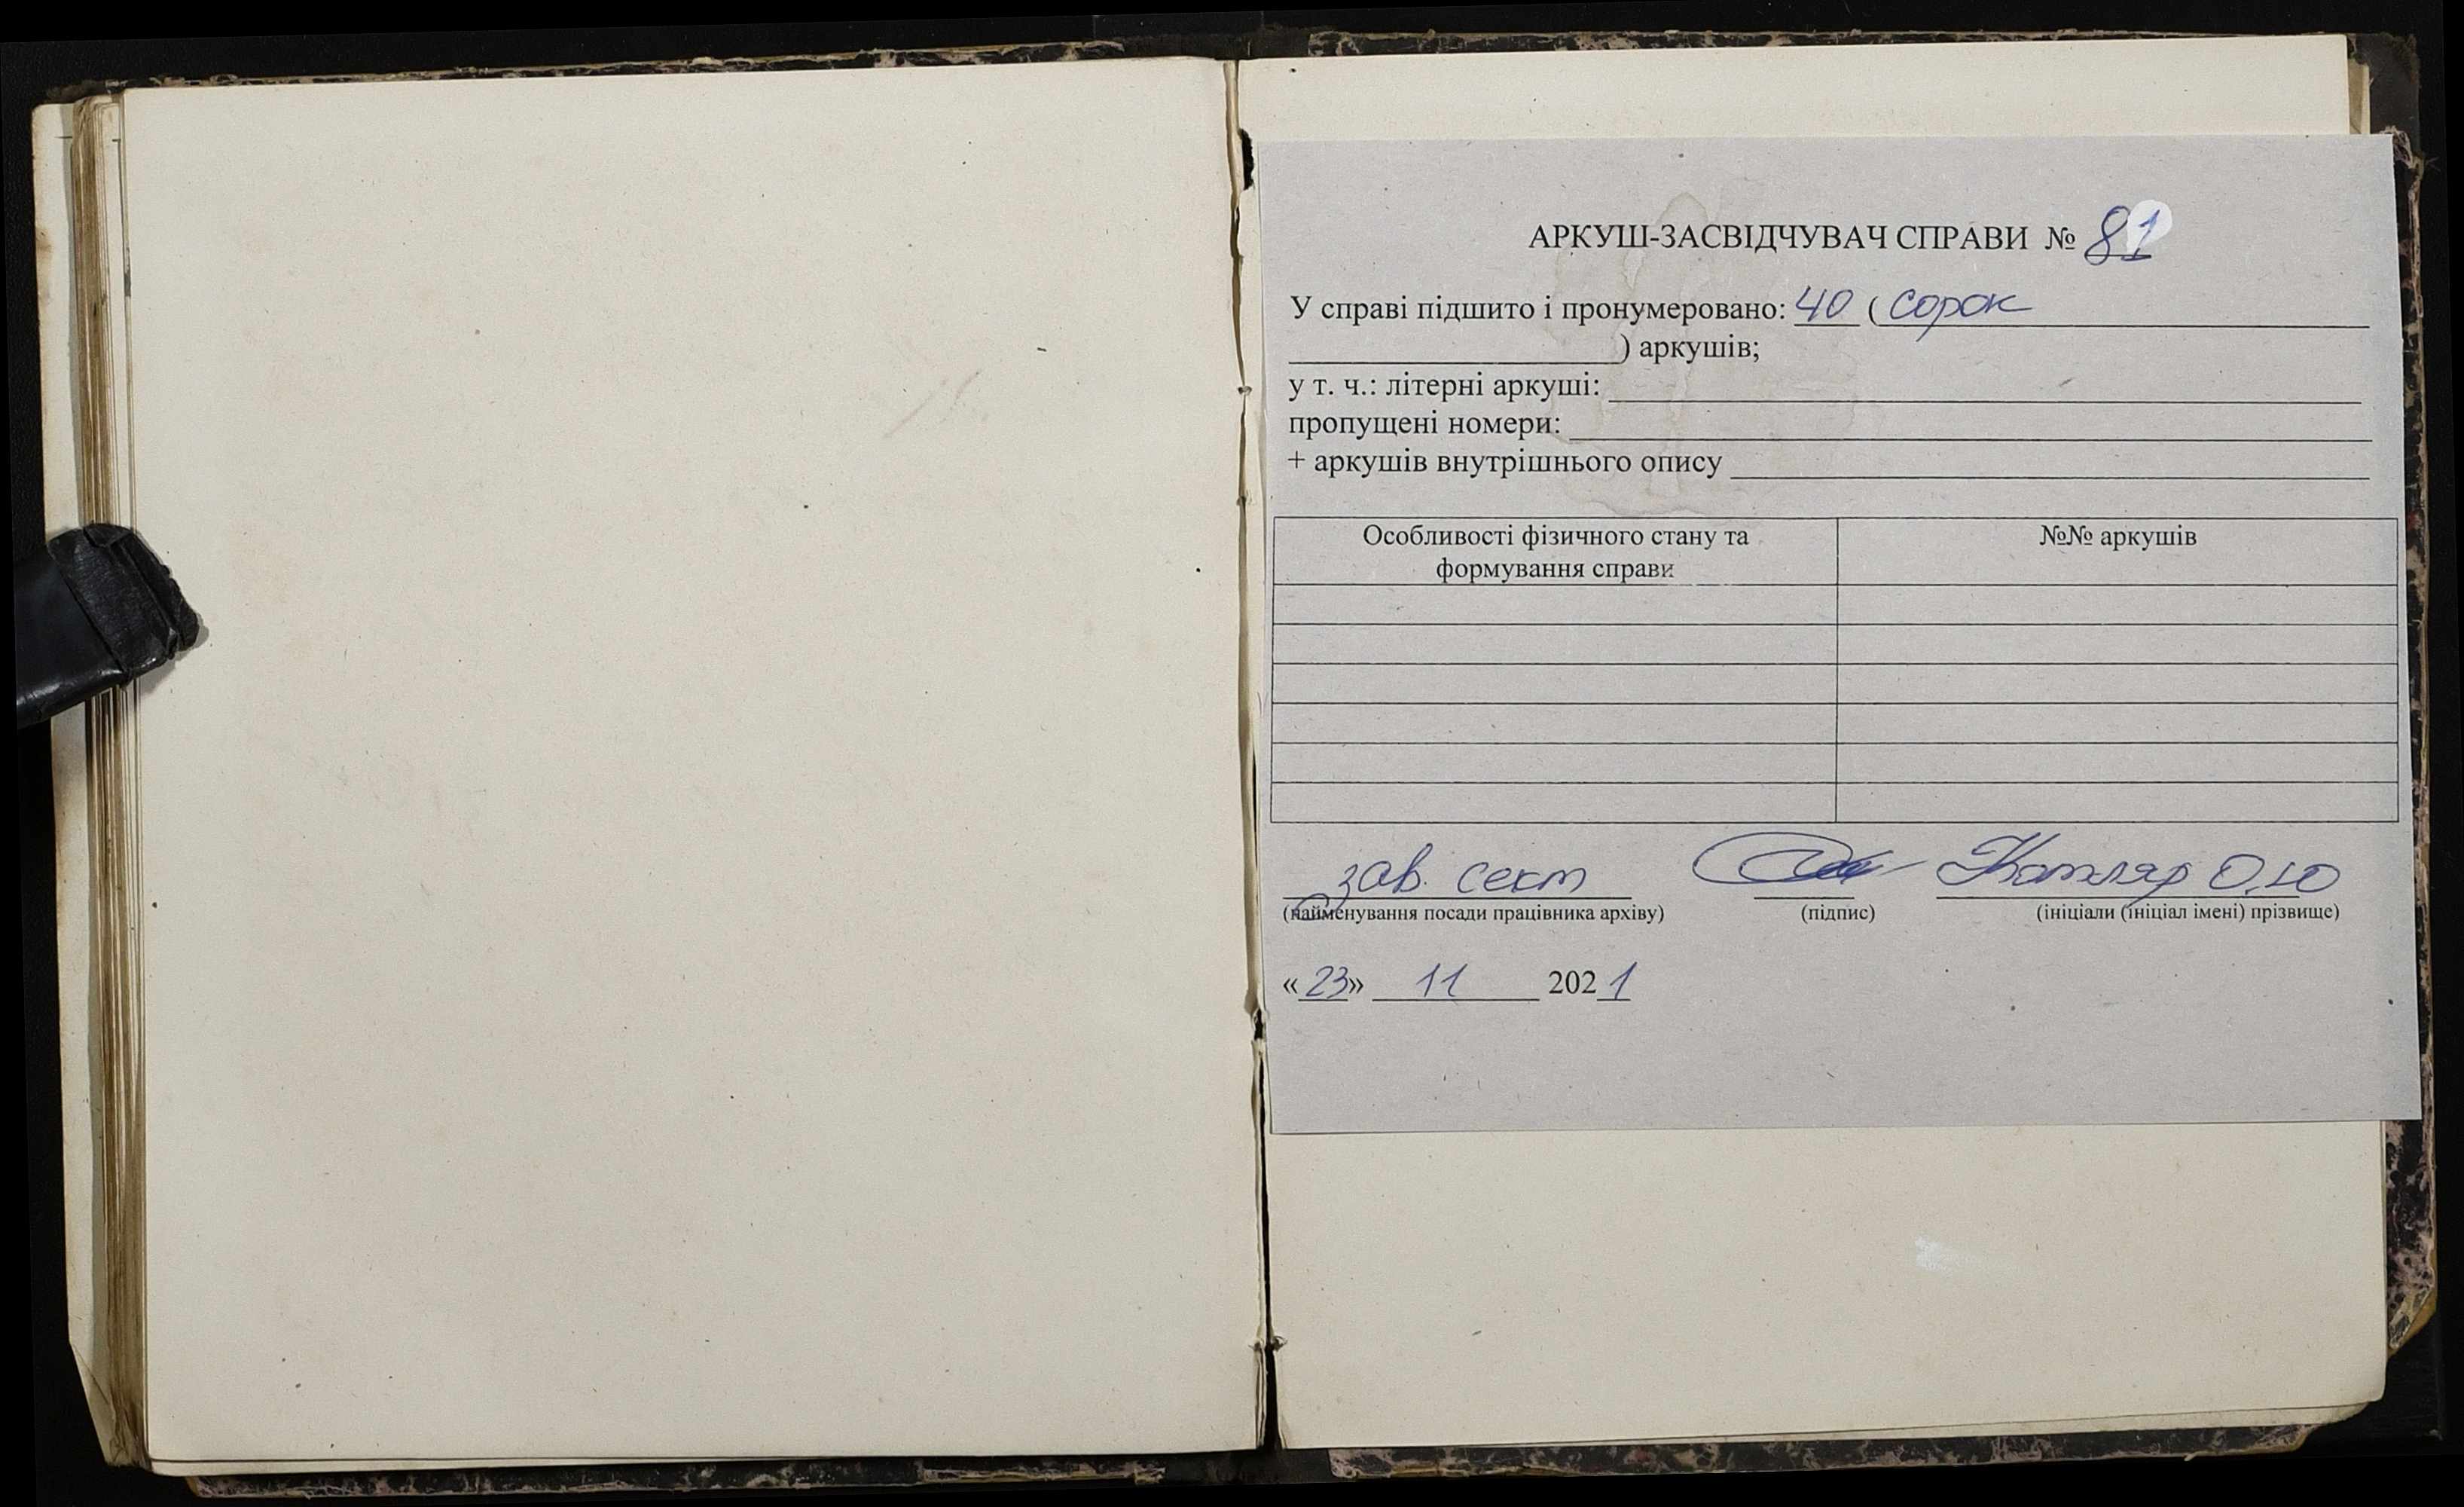 АРКУШ-ЗАСВІДЧУВАЧ СПРАВИ № 81
У справі підшито і пронумеровано: 40 ( сорок
) аркушів;
у т. ч.: літерні аркуші:
пропущені номери:
+ аркушів внутрішнього опису
Особливості фізичного стану та
формування справи
№№ аркушів
зав. сект Котляр О.Ю
(найменування посади працівника архіву) (підпис) (ініціали (ініціал імені) прізвище)
«23» 11 2021